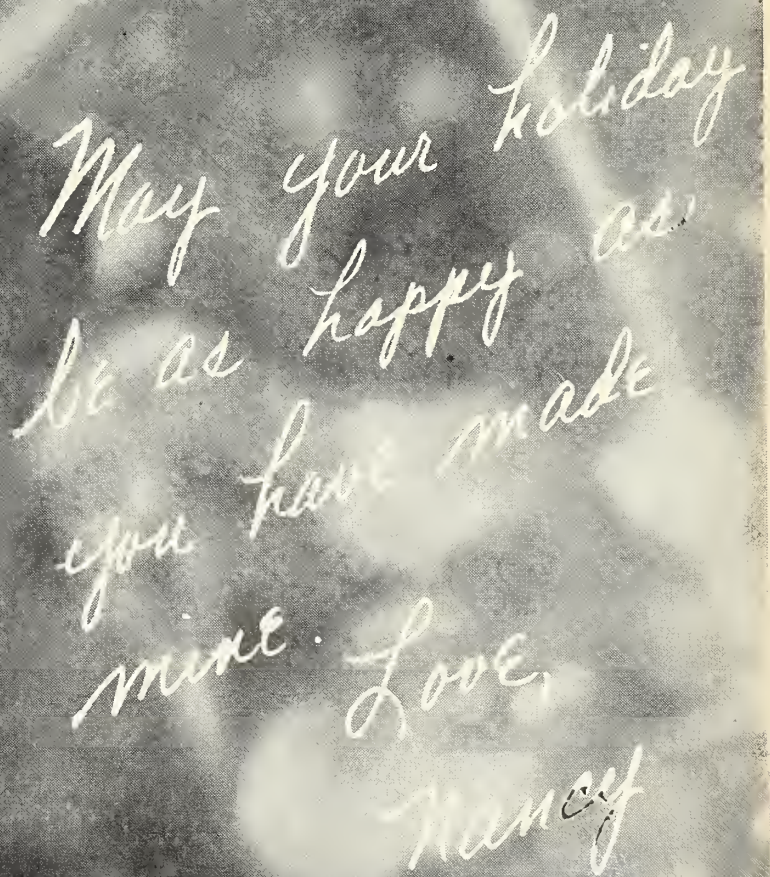 May your holiday
be as happy as
you have made
mine. Love,
Nancy